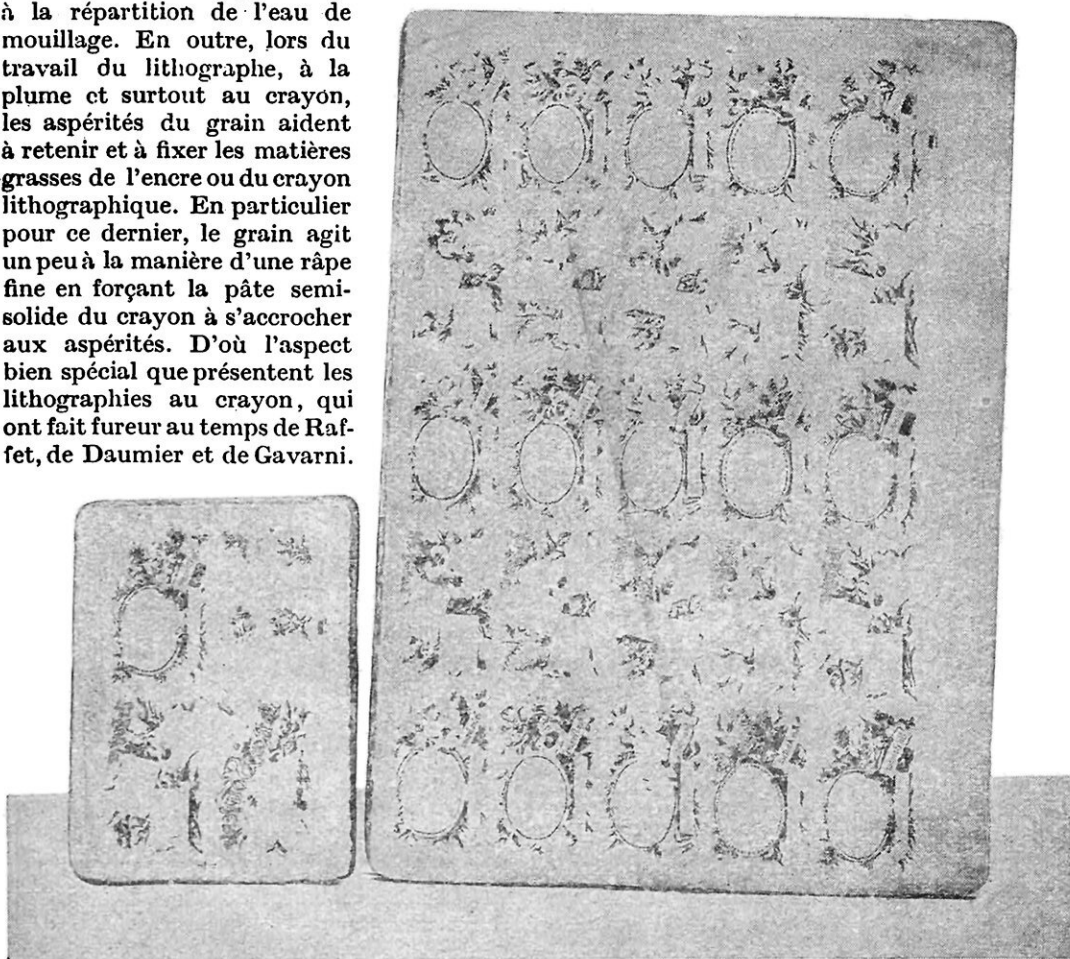 à la répartition de l'eau de
mouillage. En outre, lors du
travail du lithographe, à la
plume et surtout au crayon,
les aspérités du grain aident
à retenir et à fixer les matières
grasses de l'encre ou du crayon
lithographique. En particulier
pour ce dernier, le grain agit
un peu à la manière d'une râpe
fine en forçant la pâte semi-
solide du crayon à s'accrocher
aux aspérités. D'où l'aspect
bien spécial que présentent les
lithographies au crayon, qui
ont fait fureur au temps de Raf-
fet, de Daumier et de Gavarni.